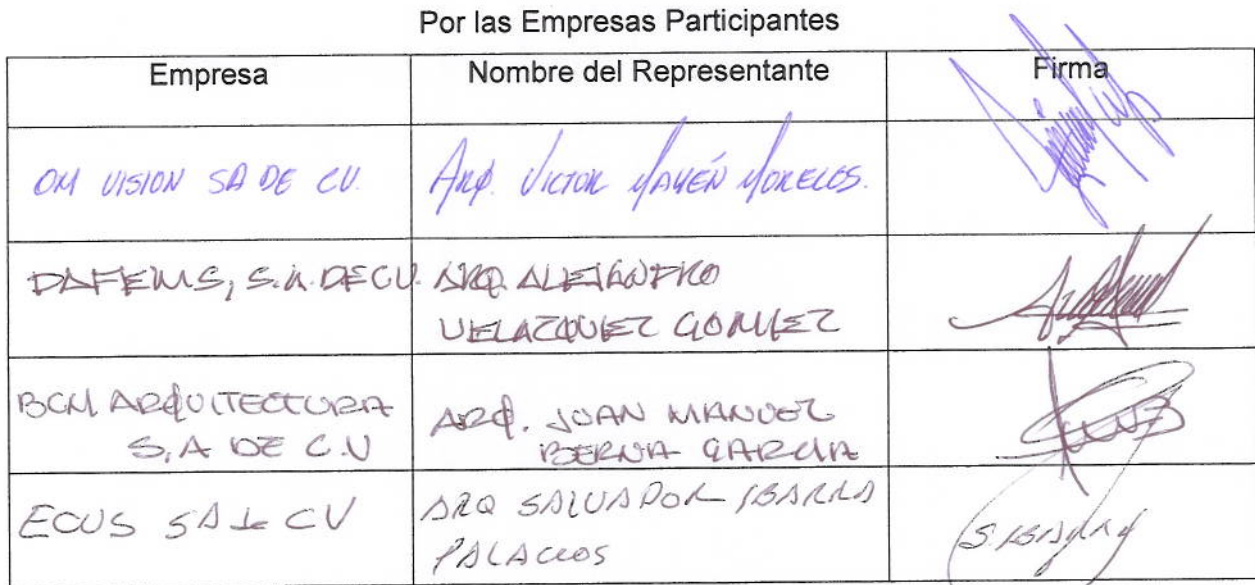 Por las Empresas Participantes
Empresa Nombre del Representante Firma
OM VISION SA DE CV. ARQ. VICTOR MAYÉN MORELOS.
DAFEMS, S.A. DE C.V. ARQ. ALEJANDRO
VELAZQUEZ GOMEZ
BCM ARQUITECTURA
S,A DE C.V
ARQ. JUAN MANUEL
BERNA GARCIA
ECUS SA de CV
ARQ SALVADOR IBARRA
PALACIOS
S. IBARRA